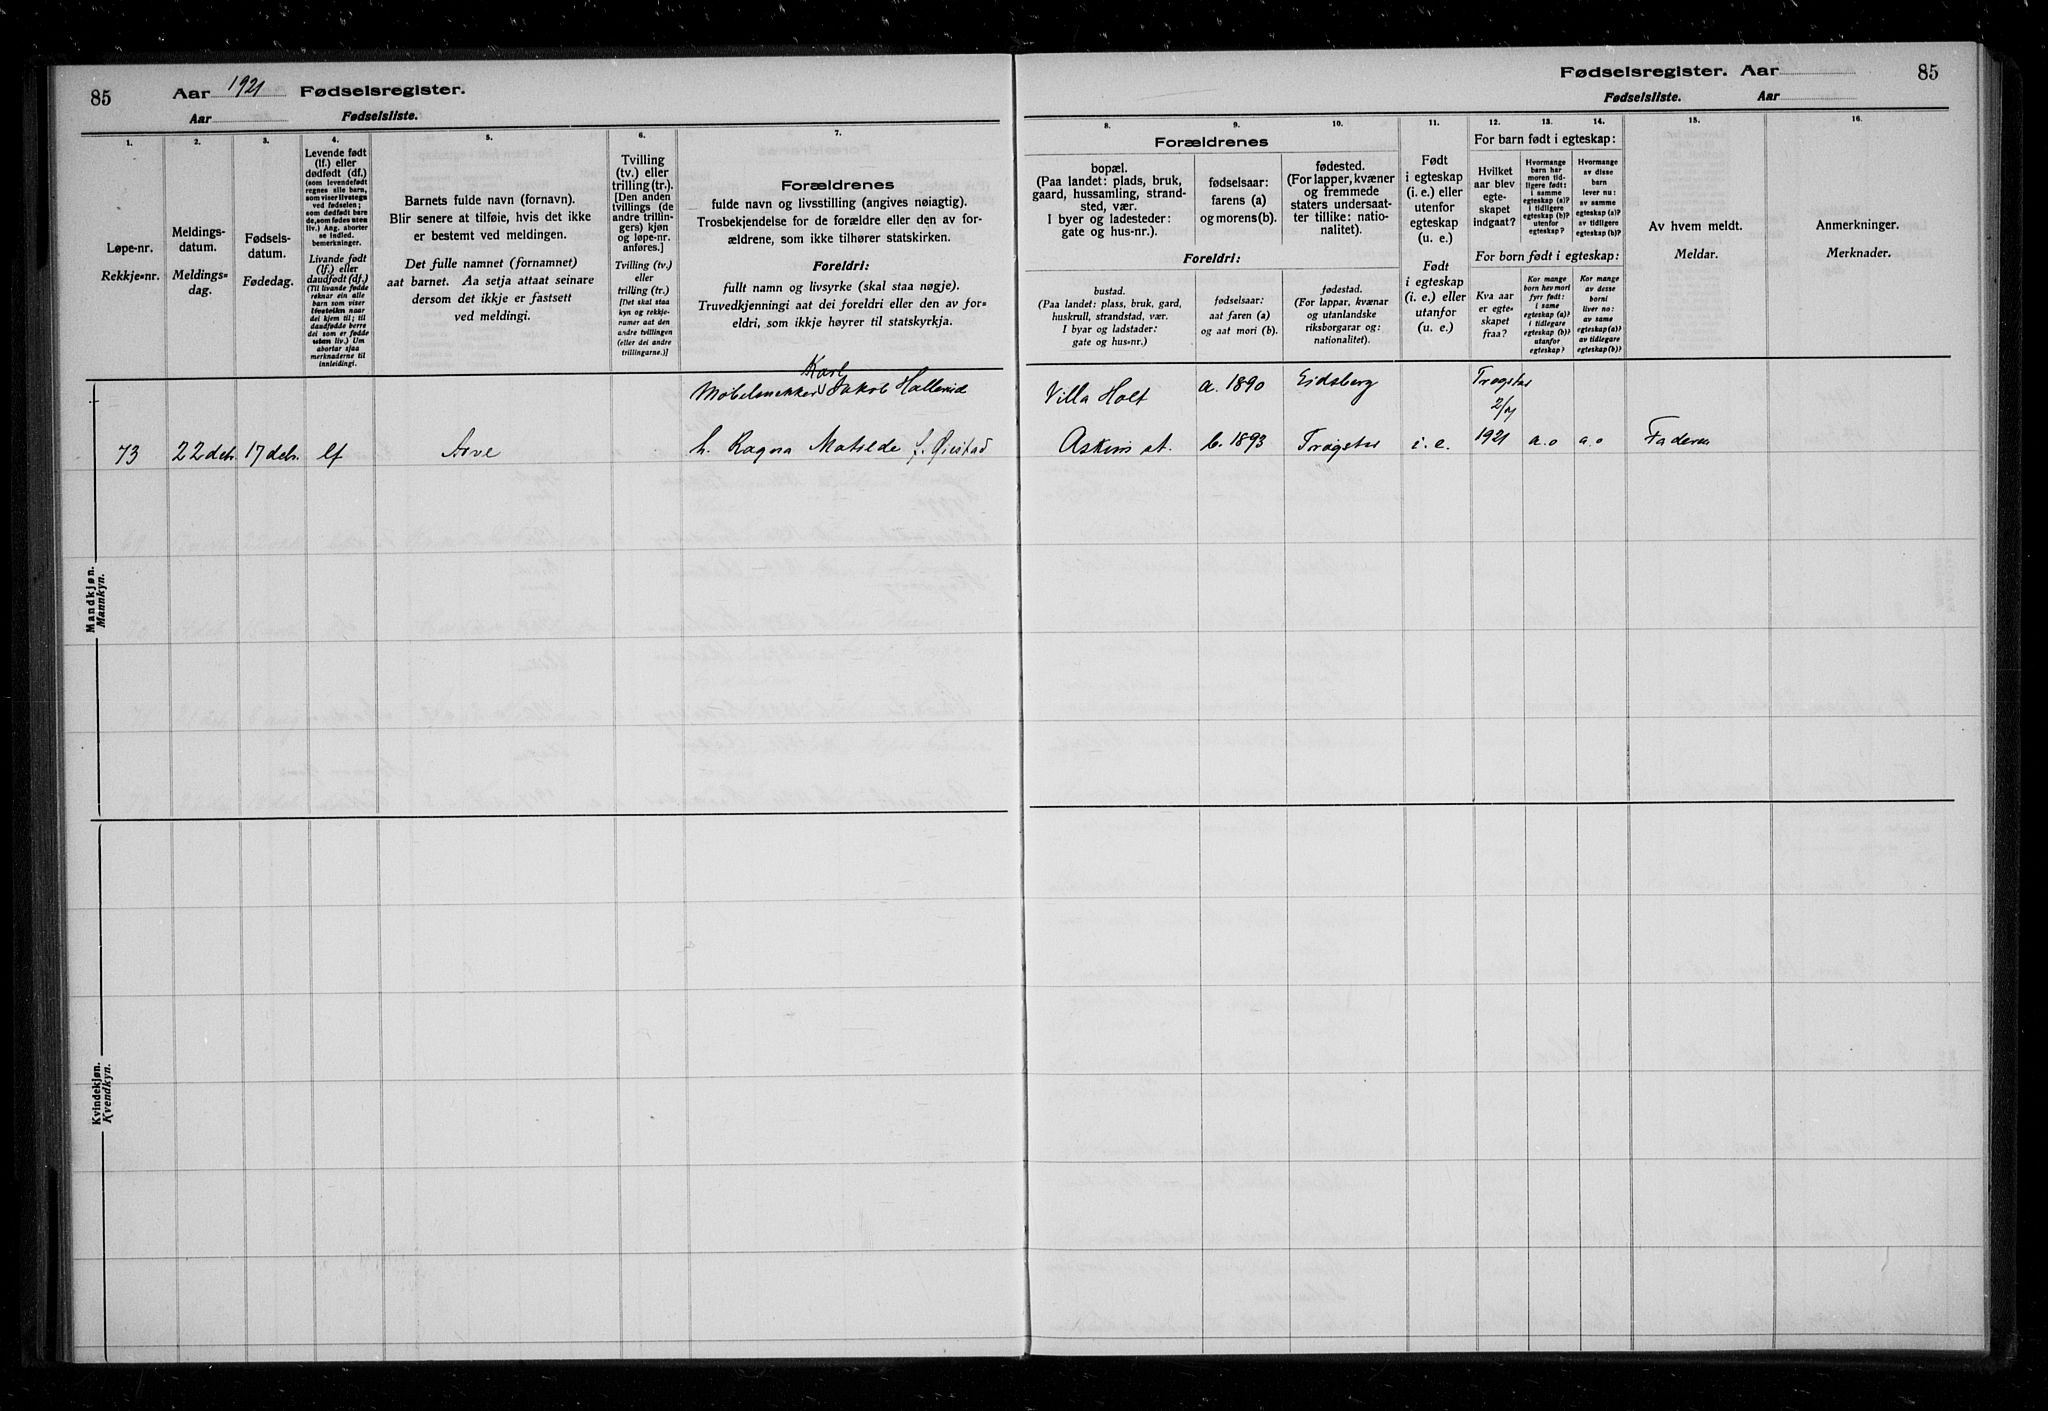 85
Aar 1921 Fødselsregister.
Aar Fødselsliste.
1.
2.
3.
4.
5.
6.
7.
Løpe-nr.
Rekkje=nr.
Meldings-
datum.
Meldings=
dag.
Fødsels-
datum.
Fødedag.
Levende født
(lf.) eller
dødfødt (df.)
(som levendefødt
regnes alle barn,
som viser livstegn
ved fødselen;
som dødfødt bare
de, som fødes uten
liv.) Ang. aborter
se indled.
bemerkninger.
Livande født
(lf.) eller
daudfødt (df.)
(Til livande fødde
reknar ein alle
barn som viser
livsteikn naar
dei kjem til; til
daudfødde berre
dei som er fødde
utan liv.) Um
abortar sjaa
merknaderne til
innleidingi.
Barnets fulde navn (fornavn).
Blir senere at tilføie, hvis det ikke
er bestemt ved meldingen.
Det fulle namnet (fornamnet)
aat barnet. Aa setja attaat seinare
dersom det ikkje er fastsett
ved meldingi.
Tvilling
(tv.) eller
trilling (tr.).
[Den anden
tvillings (de
andre trillin-
gers) kjøn
og løpe-nr.
anføres.]
Tvilling (tv.)
eller
trilling (tr.)
[Det skal staa
kyn og rekkje-
numer aat den
andre tvillingen
(eller dei andre
trillingarne.)]
Forældrenes
fulde navn og livsstilling (angives nøiagtig).
Trosbekjendelse for de forældre eller den av for-
ældrene, som ikke tilhører statskirken.
Foreldri:
fullt namn og livsyrke (skal staa nøgje).
Truvedkjenningi aat dei foreldri eller den av for=
eldri, som ikkje høyrer til statskyrkja.
Karl
Møbelsnekker Jakob Hallerud
73 22 debr. 17 debr. lf Arve h. Ragna Matilde f. Øiestad
Mandkjøn.
Mannkyn.
Kvindekjøn.
Kvendkyn.
Fødselsregister. Aar 85
Fødselsliste. Aar
8.
9.
10.
11.
12.
13.
14.
15.
16.
Forældrenes
bopæl.
(Paa landet: plads, bruk,
gaard, hussamling, strand-
sted, vær.
I byer og ladesteder:
gate og hus-nr.).
fødselsaar:
farens (a)
og morens (b).
fødested.
(For lapper, kvæner
og fremmede
staters undersaat-
ter tillike: natio-
nalitet).
Foreldri:
bustad.
(Paa landet: plass, bruk, gard,
huskrull, strandstad, vær.
I byar og ladstader:
gate og hus=nr.)
fødselsaar:
aat faren (a)
og aat mori (b).
fødestad.
(For lappar, kvænar
og utanlandske
riksborgarar og:
nationalitet).
Født
i egteskap
(i. e.) eller
utenfor
egteskap
(u. e.)
Født
i egteskap
(i. e.) eller
utanfor
(u. e.)
For barn født i egteskap:
Hvilket
aar blev
egte-
skapet
indgaat?
Hvormange
barn har
moren tid-
ligere født:
i samme
egteskap (a)?
i tidligere
egteskap (b)?
utenfor
egteskap?
Hvormange
av disse
barn
lever nu:
av samme
egteskap (a)?
av tidligere
egteskap (b)?
For born født i egteskap:
Kva aar
er egte-
skapet
fraa?
Kor mange
born hev mori
fyrr født:
i same
egteskap (a)?
i tidlegare
egteskap (b)?
utanfor
egteskap?
Kor mange
av desse
borni
liver no:
av same
egteskap (a)?
av tidlegare
egteskap (b)?
Av hvem meldt.
Meldar.
Anmerkninger.
Merknader.
Villa Holt a. 1890 Eidsberg Trøgstad
2/7
Askim st. b. 1893 Trøgstad i. e. 1921 a.o a.o Faderen